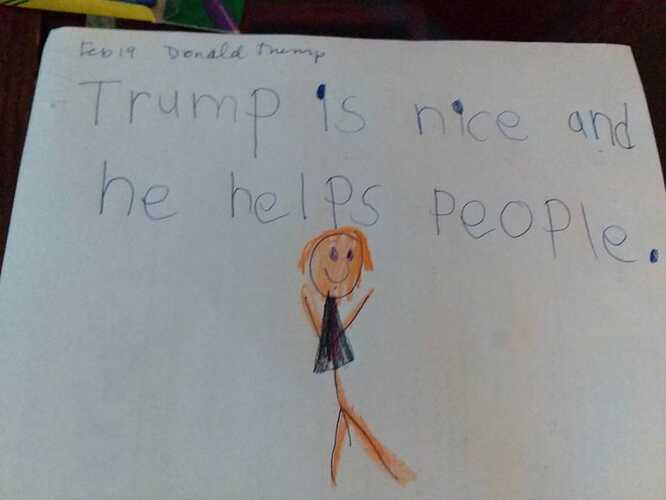 Feb 19 Donald Trump
Trump is nice and
he helps people.